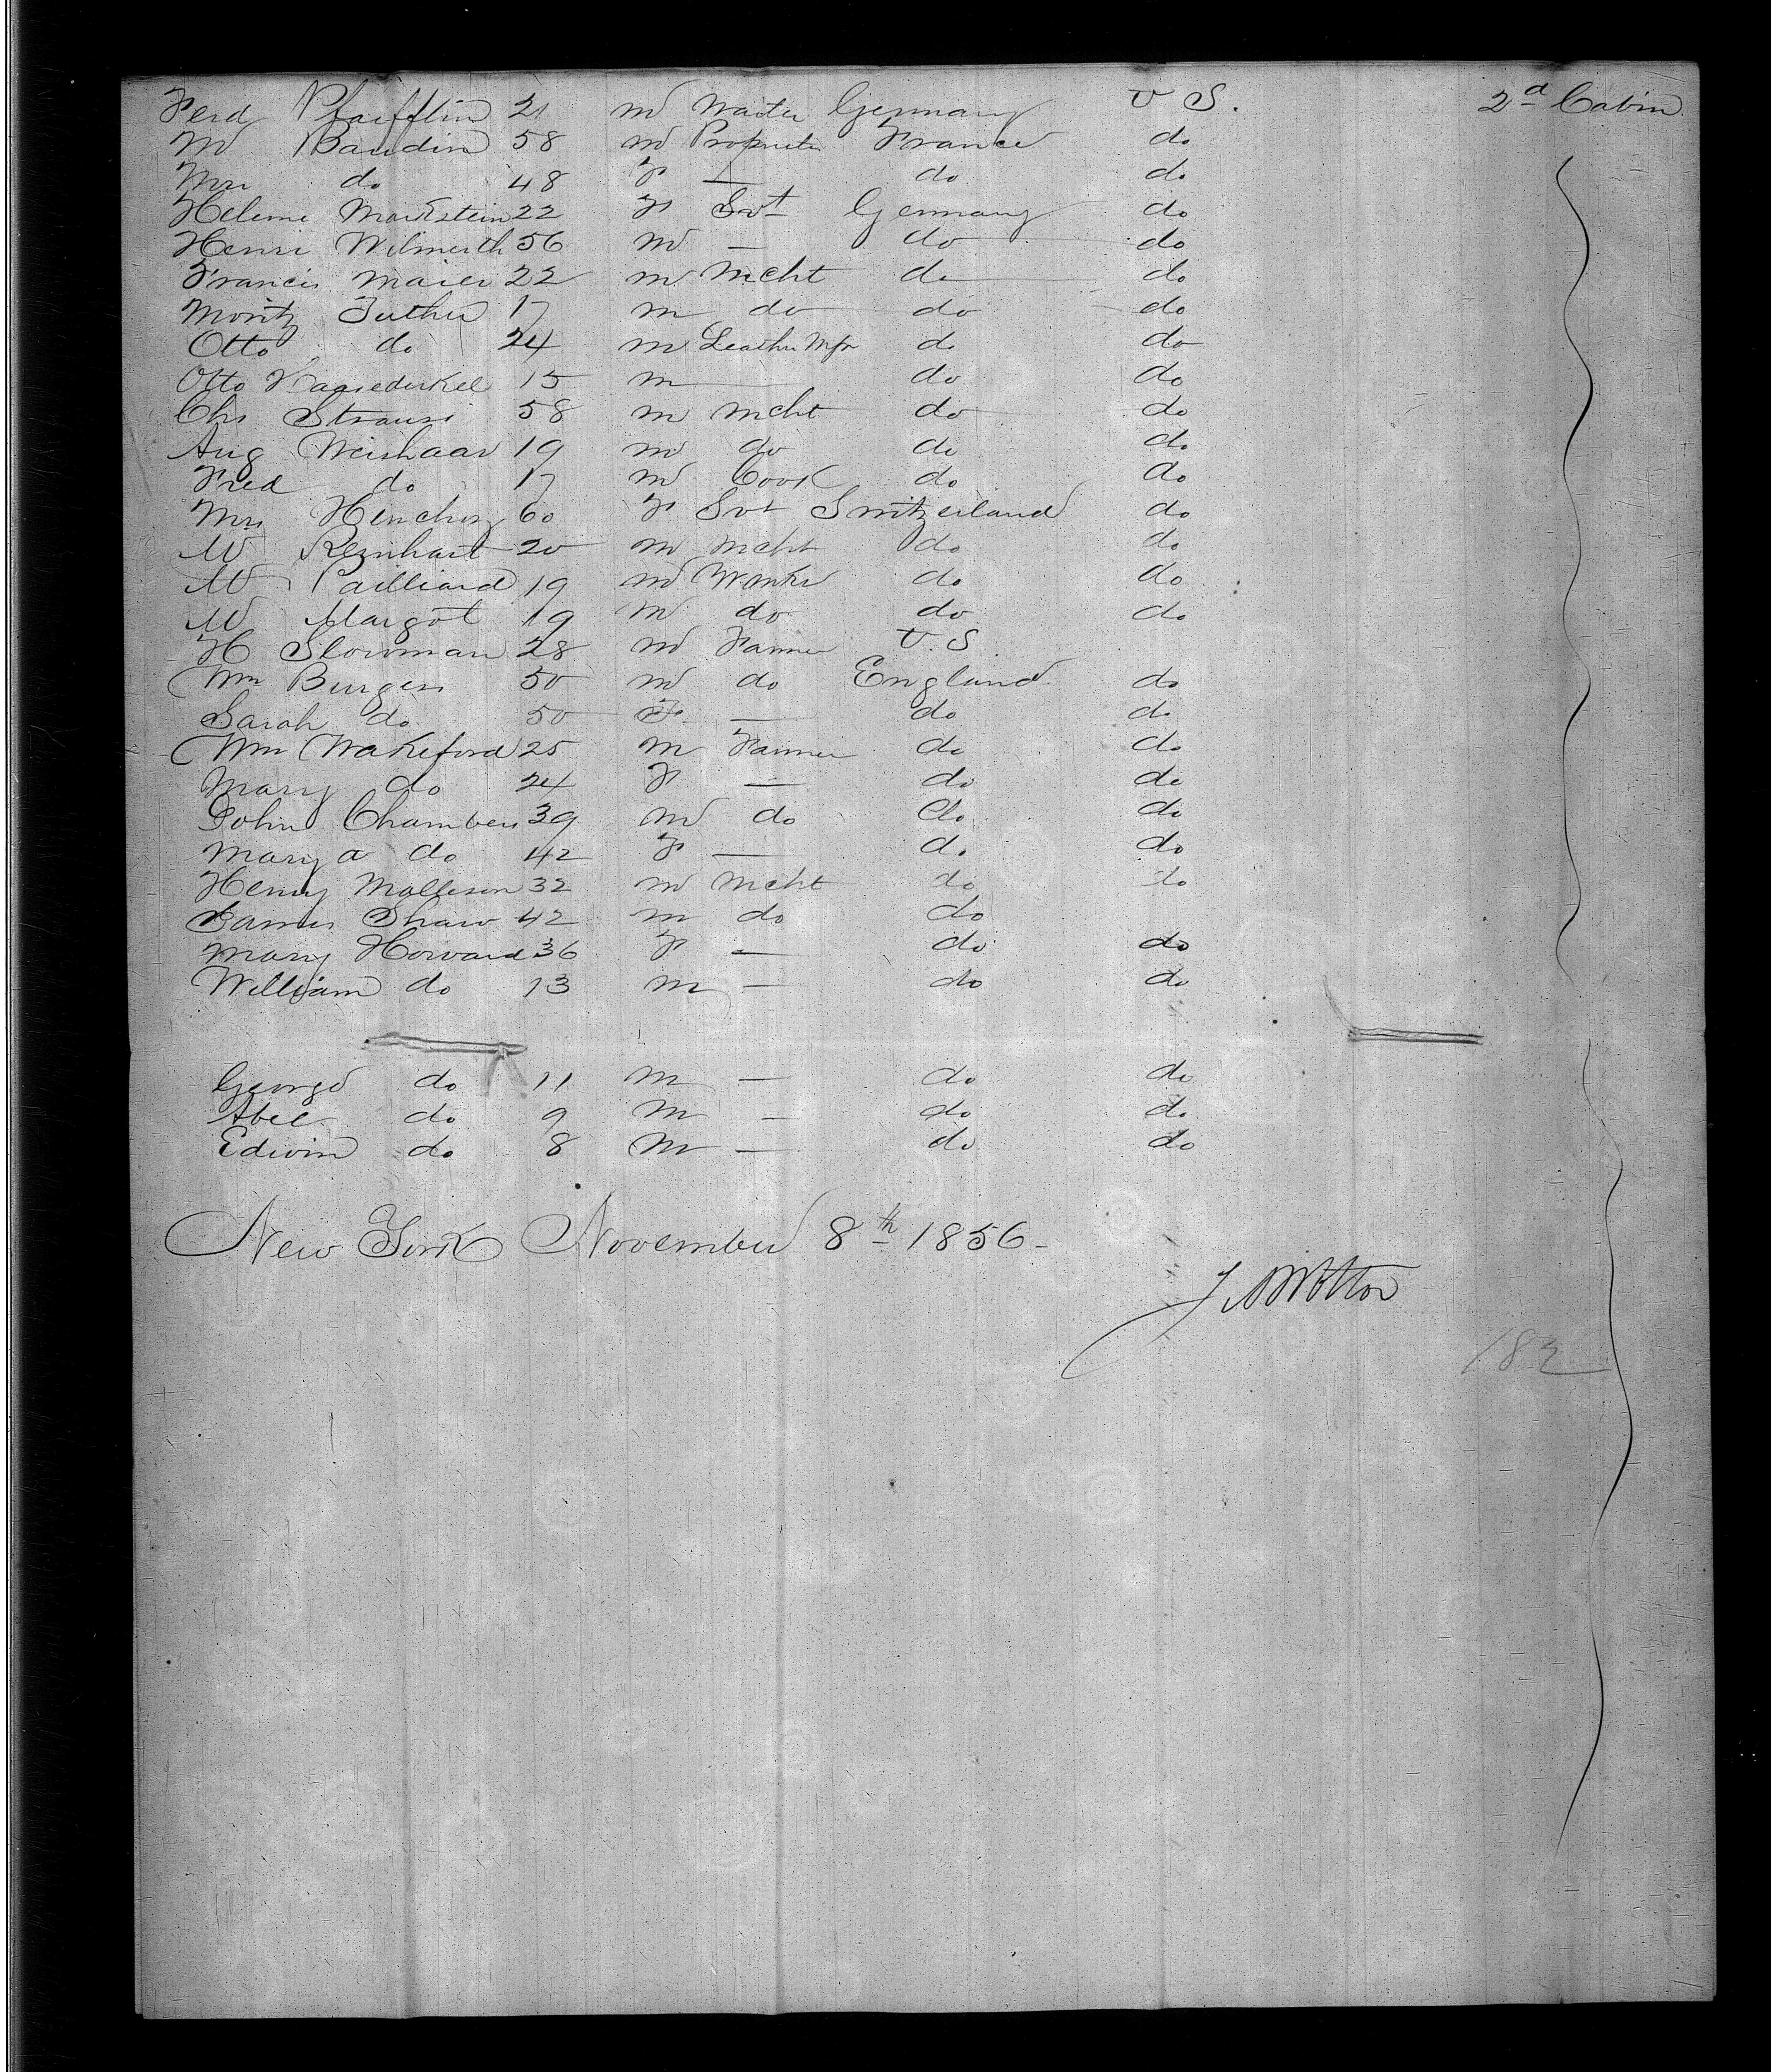 Ferd Pfaifflin 21 M Waiter Germany U S. 2d Cabin
M Baudin 58 M Proprietr France do
Mrs do 48 F — do do
Helene Markstein 22 F Svt Germany do
Henri Wilmerth 56 M — do do
Francis Maier 22 M Mcht do do
Moritz 17 M do do do
Otto do 24 M Leather Mfr do do
Otto 15 M — do do
Chs Strauss 58 M Mcht do do
Aug Weishaar 19 M do do do
Fred do 17 M Cook do do
Mrs Henchoz 60 F Svt Switzerland do
M Reinhart 20 M Mcht do do
M Pailliard 19 M Worker do do
M Margot 19 M do do do
H Slowman 28 M Farmer U.S.
Wm Burgess 50 M do England do
Sarah do 50 F — do do
Wm Wakeford 25 M Farmer do do
Mary do 24 F — do do
John Chambers 39 M do do do
Mary A do 42 F — do do
Henry Malleson 32 M Mcht do do
James Shaw 42 M do do
Mary Howard 36 F — do do
William do 13 M — do do
George do 11 M — do do
Abel do 9 M — do do
Edwin do 8 M — do do
New York November 8th 1856 -
J A Wotton
182